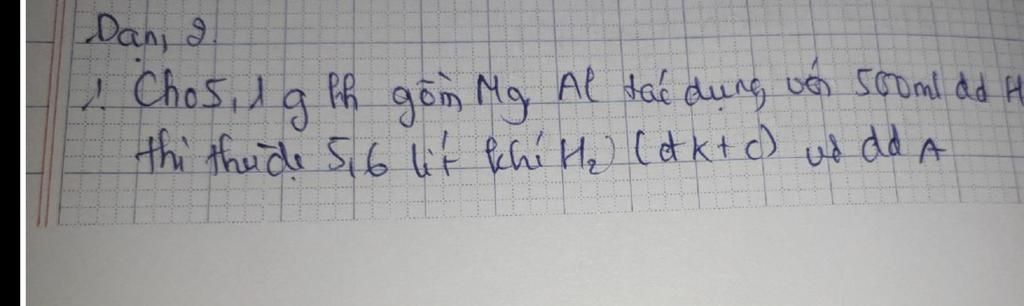 Dạn, 2.
1. Cho 5,1 g hh gồm Mg, Al tác dụng với 500ml dd H
thì thu đc 5,6 lít khí H₂ (đktc) và dd A